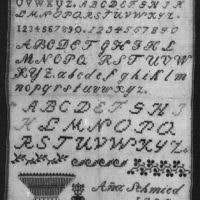 UVWXYZ. ABCDEFGHIJK
LMNOPQRSTUVWXYZ.
1234567890. 1234567890
ABCDEFGHIJKL
MNOPQRSTUVW
XYZ. abcdefghiklm
nopqrstuvwxyz.
ABCDEFGHIJ
KLMNOPQ
RSTUVWXYZ.
Ana Schmied